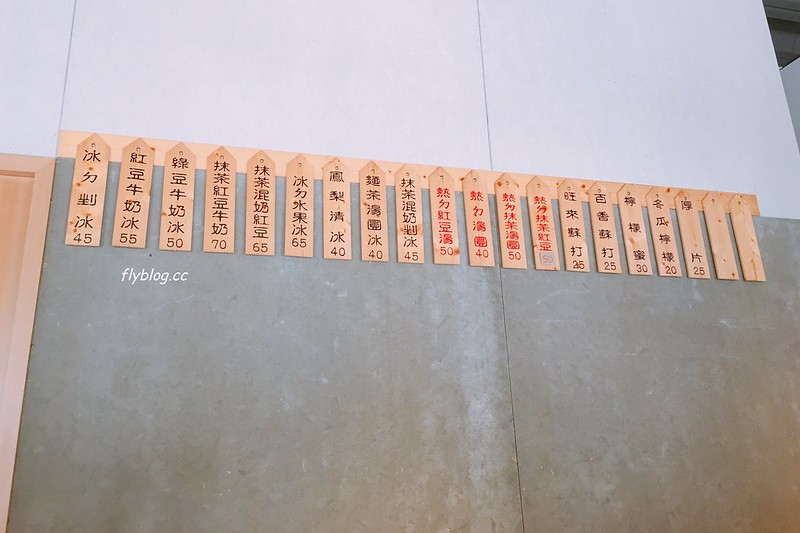 冰ㄉ剉冰45
紅豆牛奶冰55
綠豆牛奶冰50
抹茶紅豆牛奶70
抹茶混奶紅豆65
冰ㄉ水果冰65
鳳梨清冰40
麵茶湯圓冰40
抹茶混奶剉冰45
熱ㄉ紅豆湯50
熱ㄉ湯圓40
熱ㄉ抹茶湯圓50
熱ㄉ抹茶紅豆50
旺來蘇打25
百香蘇打25
檸檬蜜30
冬瓜檸檬20
厚片25
flyblog.cc